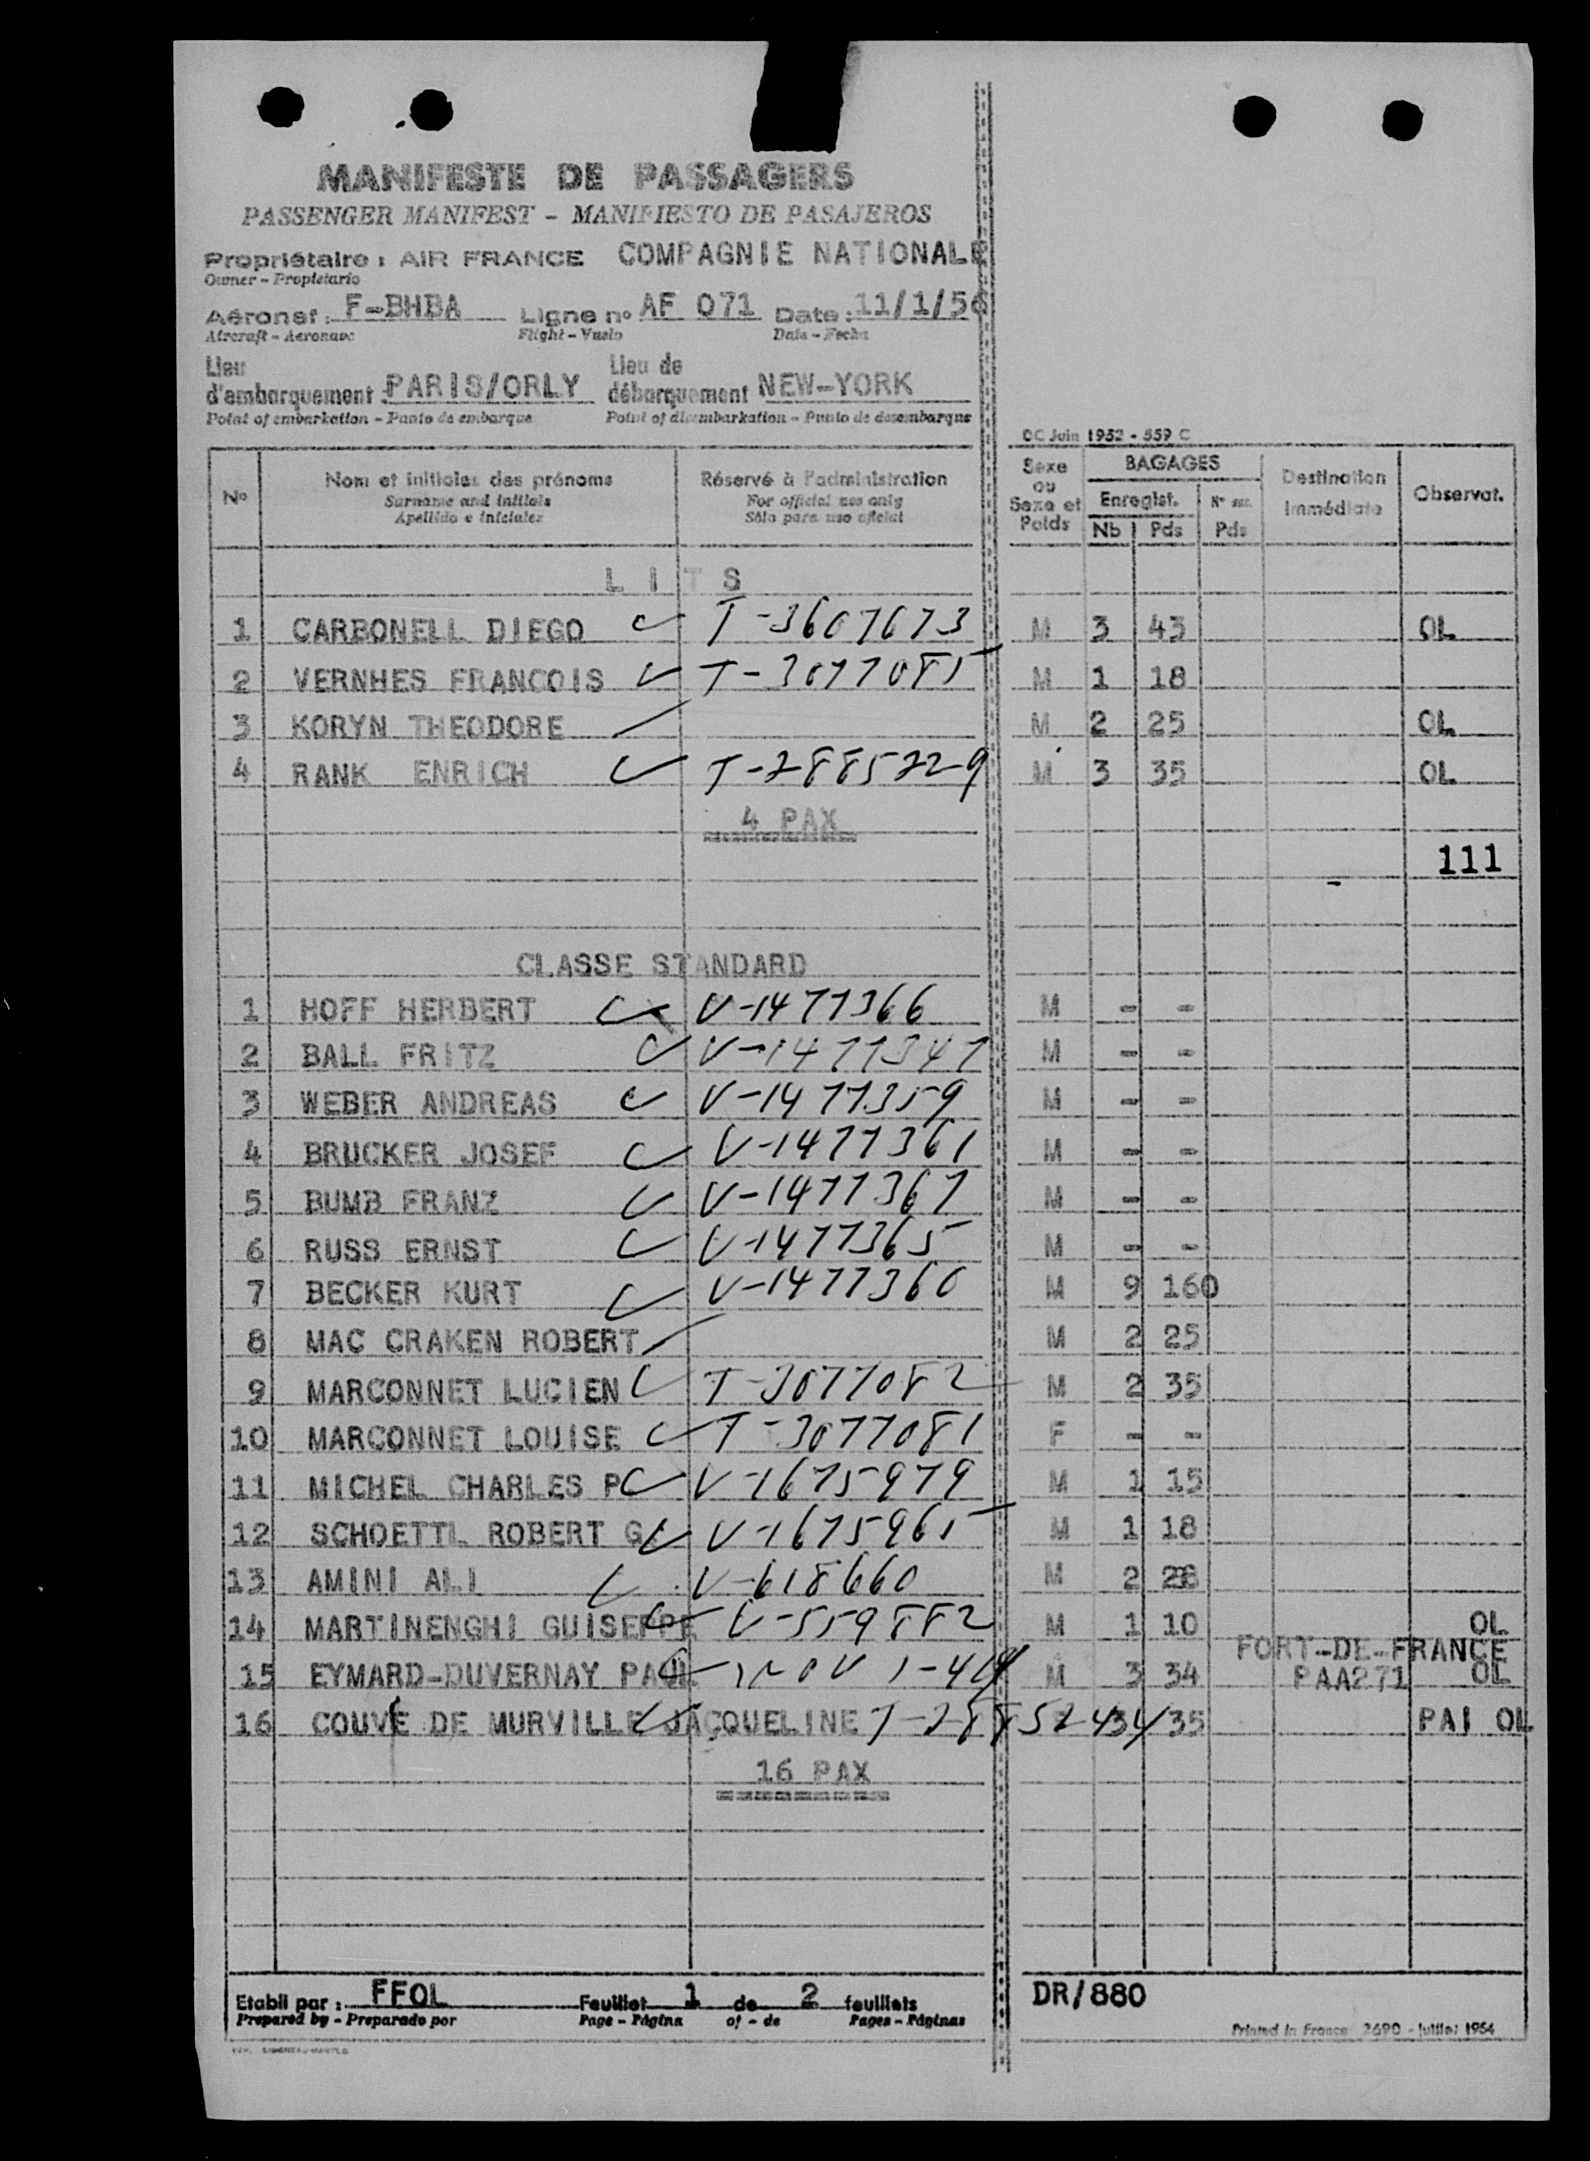 MANIFESTE DE PASSAGERS
PASSENGER MANIFEST - MANIFIESTO DE PASAJEROS
Propriétaire : AIR FRANCE COMPAGNIE NATIONALE
Owner - Propietario
Aéronef : F-BHBA Ligne nº AF 071 Date : 11/1/56
Aircraft - Aeronave Flight - Vuelo Date - Fecha
Lieu d'embarquement : PARIS/ORLY Lieu de débarquement NEW-YORK
Point of embarkation - Punto de embarque Point of disembarkation - Punto de desembarque
DC Juin 1952 - 559 C
Nº Nom et initiales des prénoms Réservé à l'administration Sexe ou Sexe et Poids BAGAGES Destination Immédiate Observat.
Surname and initials For official use only Enregist. Nº
Apellido e iniciales Sólo para uso oficial Nb Pds Pds
LITS
1 CARBONELL DIEGO T-3607673 M 3 43 OL
2 VERNHES FRANCOIS T-3077085 M 1 18
3 KORYN THEODORE M 2 25 OL
4 RANK ENRICH T-2885229 M 3 35 OL
4 PAX
111
CLASSE STANDARD
1 HOFF HERBERT V-1477366 M - -
2 BALL FRITZ V-1477347 M - -
3 WEBER ANDREAS V-1477359 M - -
4 BRUCKER JOSEF V-1477361 M - -
5 BUMB FRANZ V-1477367 M - -
6 RUSS ERNST V-1477365 M - -
7 BECKER KURT V-1477360 M 9 160
8 MAC CRAKEN ROBERT M 2 25
9 MARCONNET LUCIEN T-3077082 M 2 35
10 MARCONNET LOUISE T-3077081 F - -
11 MICHEL CHARLES P V-1675979 M 1 15
12 SCHOETTL ROBERT G V-1675965 M 1 18
13 AMINI ALI V-618660 M 2
14 MARTINENGHI GUISEPPE V-559882 M 1 10 OL
FORT-DE-FRANCE
15 EYMARD-DUVERNAY PAUL M 3 34 PAA271 OL
16 COUVE DE MURVILLE JACQUELINE T-2885243 35 PAI OL
16 PAX
Etabli par : FFOL Feuillet 1 de 2 feuillets DR/880
Prepared by - Preparado por Page - Página of - de Pages - Páginas
Printed in France 2690 - Juillet 1954